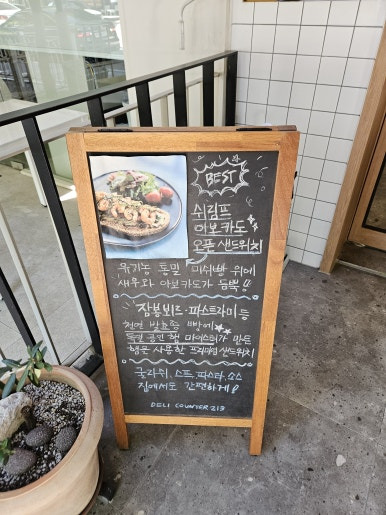 BEST
쉬림프
아보카도
오픈 샌드위치
유기농 통밀 미쉬빵 위에
새우와 아보카도가 듬뿍!!
잠봉뵈르·파스트라미 등
천연 발효종 빵에
독일 공인 햄 마이스터가 만든
햄을 사용한 프리미엄 샌드위치
굴라쉬, 스튜, 파스타, 소스
집에서도 간편하게!
DELI COUNTER 213